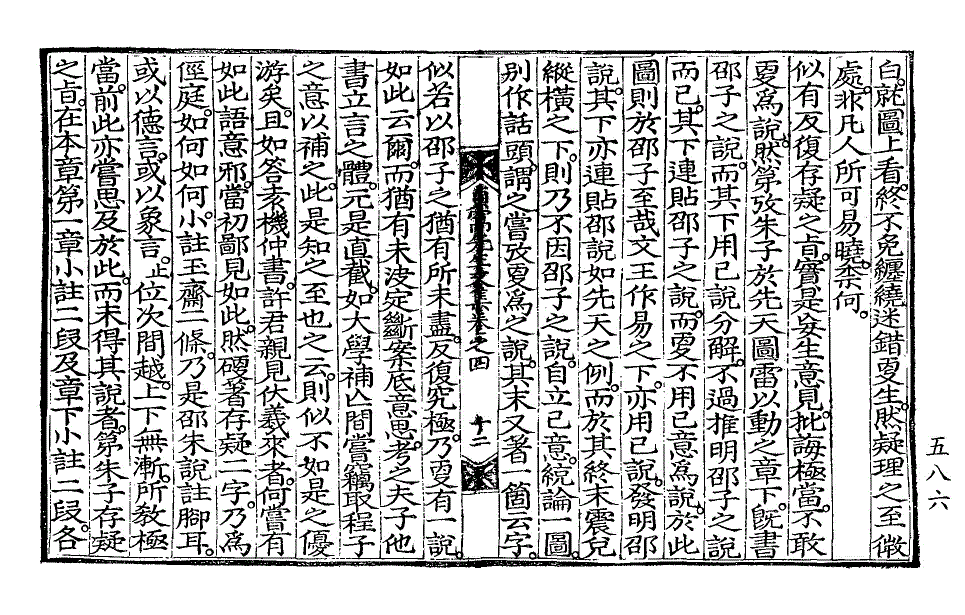 白。就圖上看。終不免纏繞迷錯。更生然疑。理之至微
處。非凡人所可易曉。柰何。
似有反復存疑之旨。實是妄生意見。批誨極當。不敢
更爲說。然第攷朱子於先天圖雷以動之章下。旣書
邵子之說。而其下用己說分解。不過推明邵子之說
而己。其下連貼邵子之說。而更不用己意爲說。於此
圖則於邵子至哉文王作易之下。亦用己說。發明邵
說。其下亦連貼邵說如先天之例。而於其終末震兌
縱橫之下。則乃不因邵子之說。自立己意。統論一圖。
別作話頭。謂之嘗攷更爲之說。其末又著一箇云字。
似若以邵子之猶有所未盡。反復究極。乃更有一說。
如此云爾。而猶有未波定斷案底意思。考之夫子他
書立言之體。元是直截。如大學補亡。間嘗竊取程子
之意以補之。此是知之至也之云。則似不如是之優
游矣。且如答袁機仲書。許君親見伏羲來者。何嘗有
如此語意邪。當初鄙見如此。然硬著存疑二字。乃爲
徑庭。如何如何。小註玉齋二條。乃是邵朱說註脚耳。
或以德言。或以象言。止位次間越。上下無漸。所敎極
當。前此亦嘗思及於此。而未得其說者。第朱子存疑
之旨。在本章第一章小註二段及章下小註二段。各
卷之四
十二
五八六